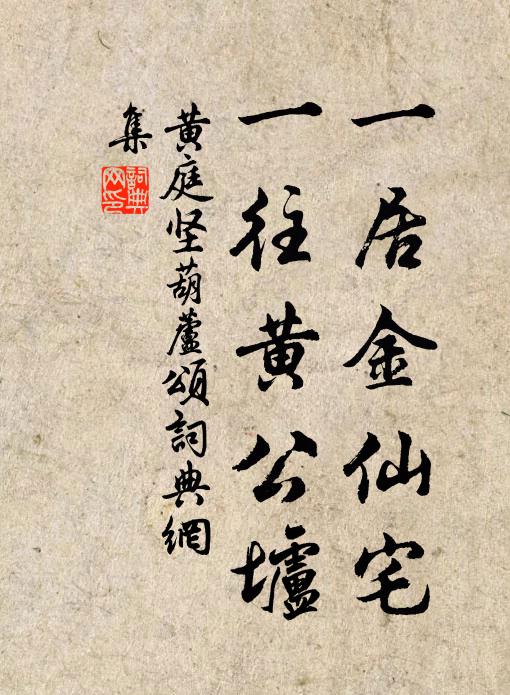 一居金仙宅
一往黄公壚
黄庭坚葫蘆頌詞典網
集
詞典网印